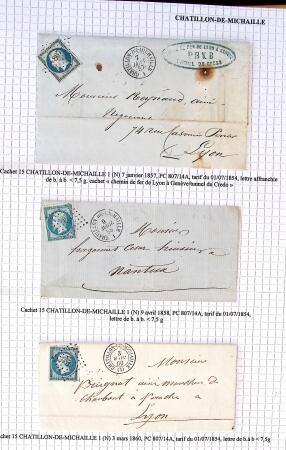 CHATILLON-DE-MICHAILLE
DE FER DE LYON A GENEVE
TUNNEL DU CREDO
Monsieur Reynaud, ainé
74 rue Casimir Perier
Lyon
Cachet 15 CHATILLON-DE-MICHAILLE 1 (N) 7 janvier 1857, PC 807/14A, tarif du 01/07/1854, lettre affranchie
de b. à b. < 7,5 g, cachet « chemin de fer de Lyon à Genève/tunnel du Credo »
Monsieur
Nantua
Cachet 15 CHATILLON-DE-MICHAILLE 1 (N) 9 avril 1858, PC 807/14A, tarif du 01/07/1854,
lettre de b. à b. < 7,5 g
Monsieur
ainé marchand de
charbont à
Lyon
Cachet 15 CHATILLON-DE-MICHAILLE 1 (N) 3 mars 1860, PC 807/14A, tarif du 01/07/1854, lettre de b.à b < 7,5g